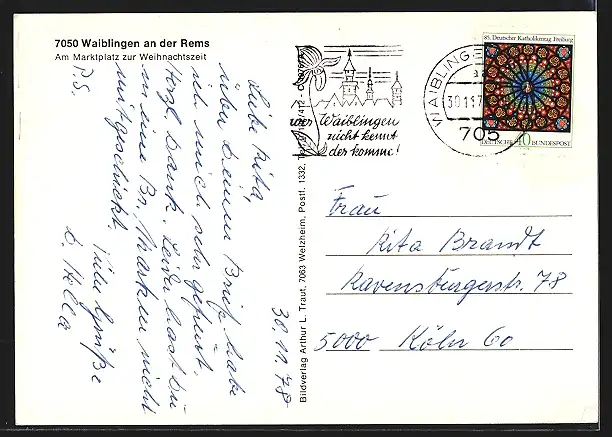 7050 Waiblingen an der Rems
Am Marktplatz zur Weihnachtszeit
30.11.78
Liebe Rita,
über Deinen Brief habe
ich mich sehr gefreut.
Herzl. Dank. Leider hast Du
mir eine Br. Marken nicht
mitgeschickt.
Viele Grüße
Hella
P.S.
Bildverlag Arthur L. Traut, 7063 Welzheim, Postf. 1332, Tel.
wer Waiblingen
nicht kennt
der komme!
WAIBLINGEN
30.11.7
705
85. Deutscher Katholikentag Freiburg
DEUTSCHE BUNDESPOST
40
Frau
Rita Brandt
Ravensburgerstr. 78
5000 Köln 60